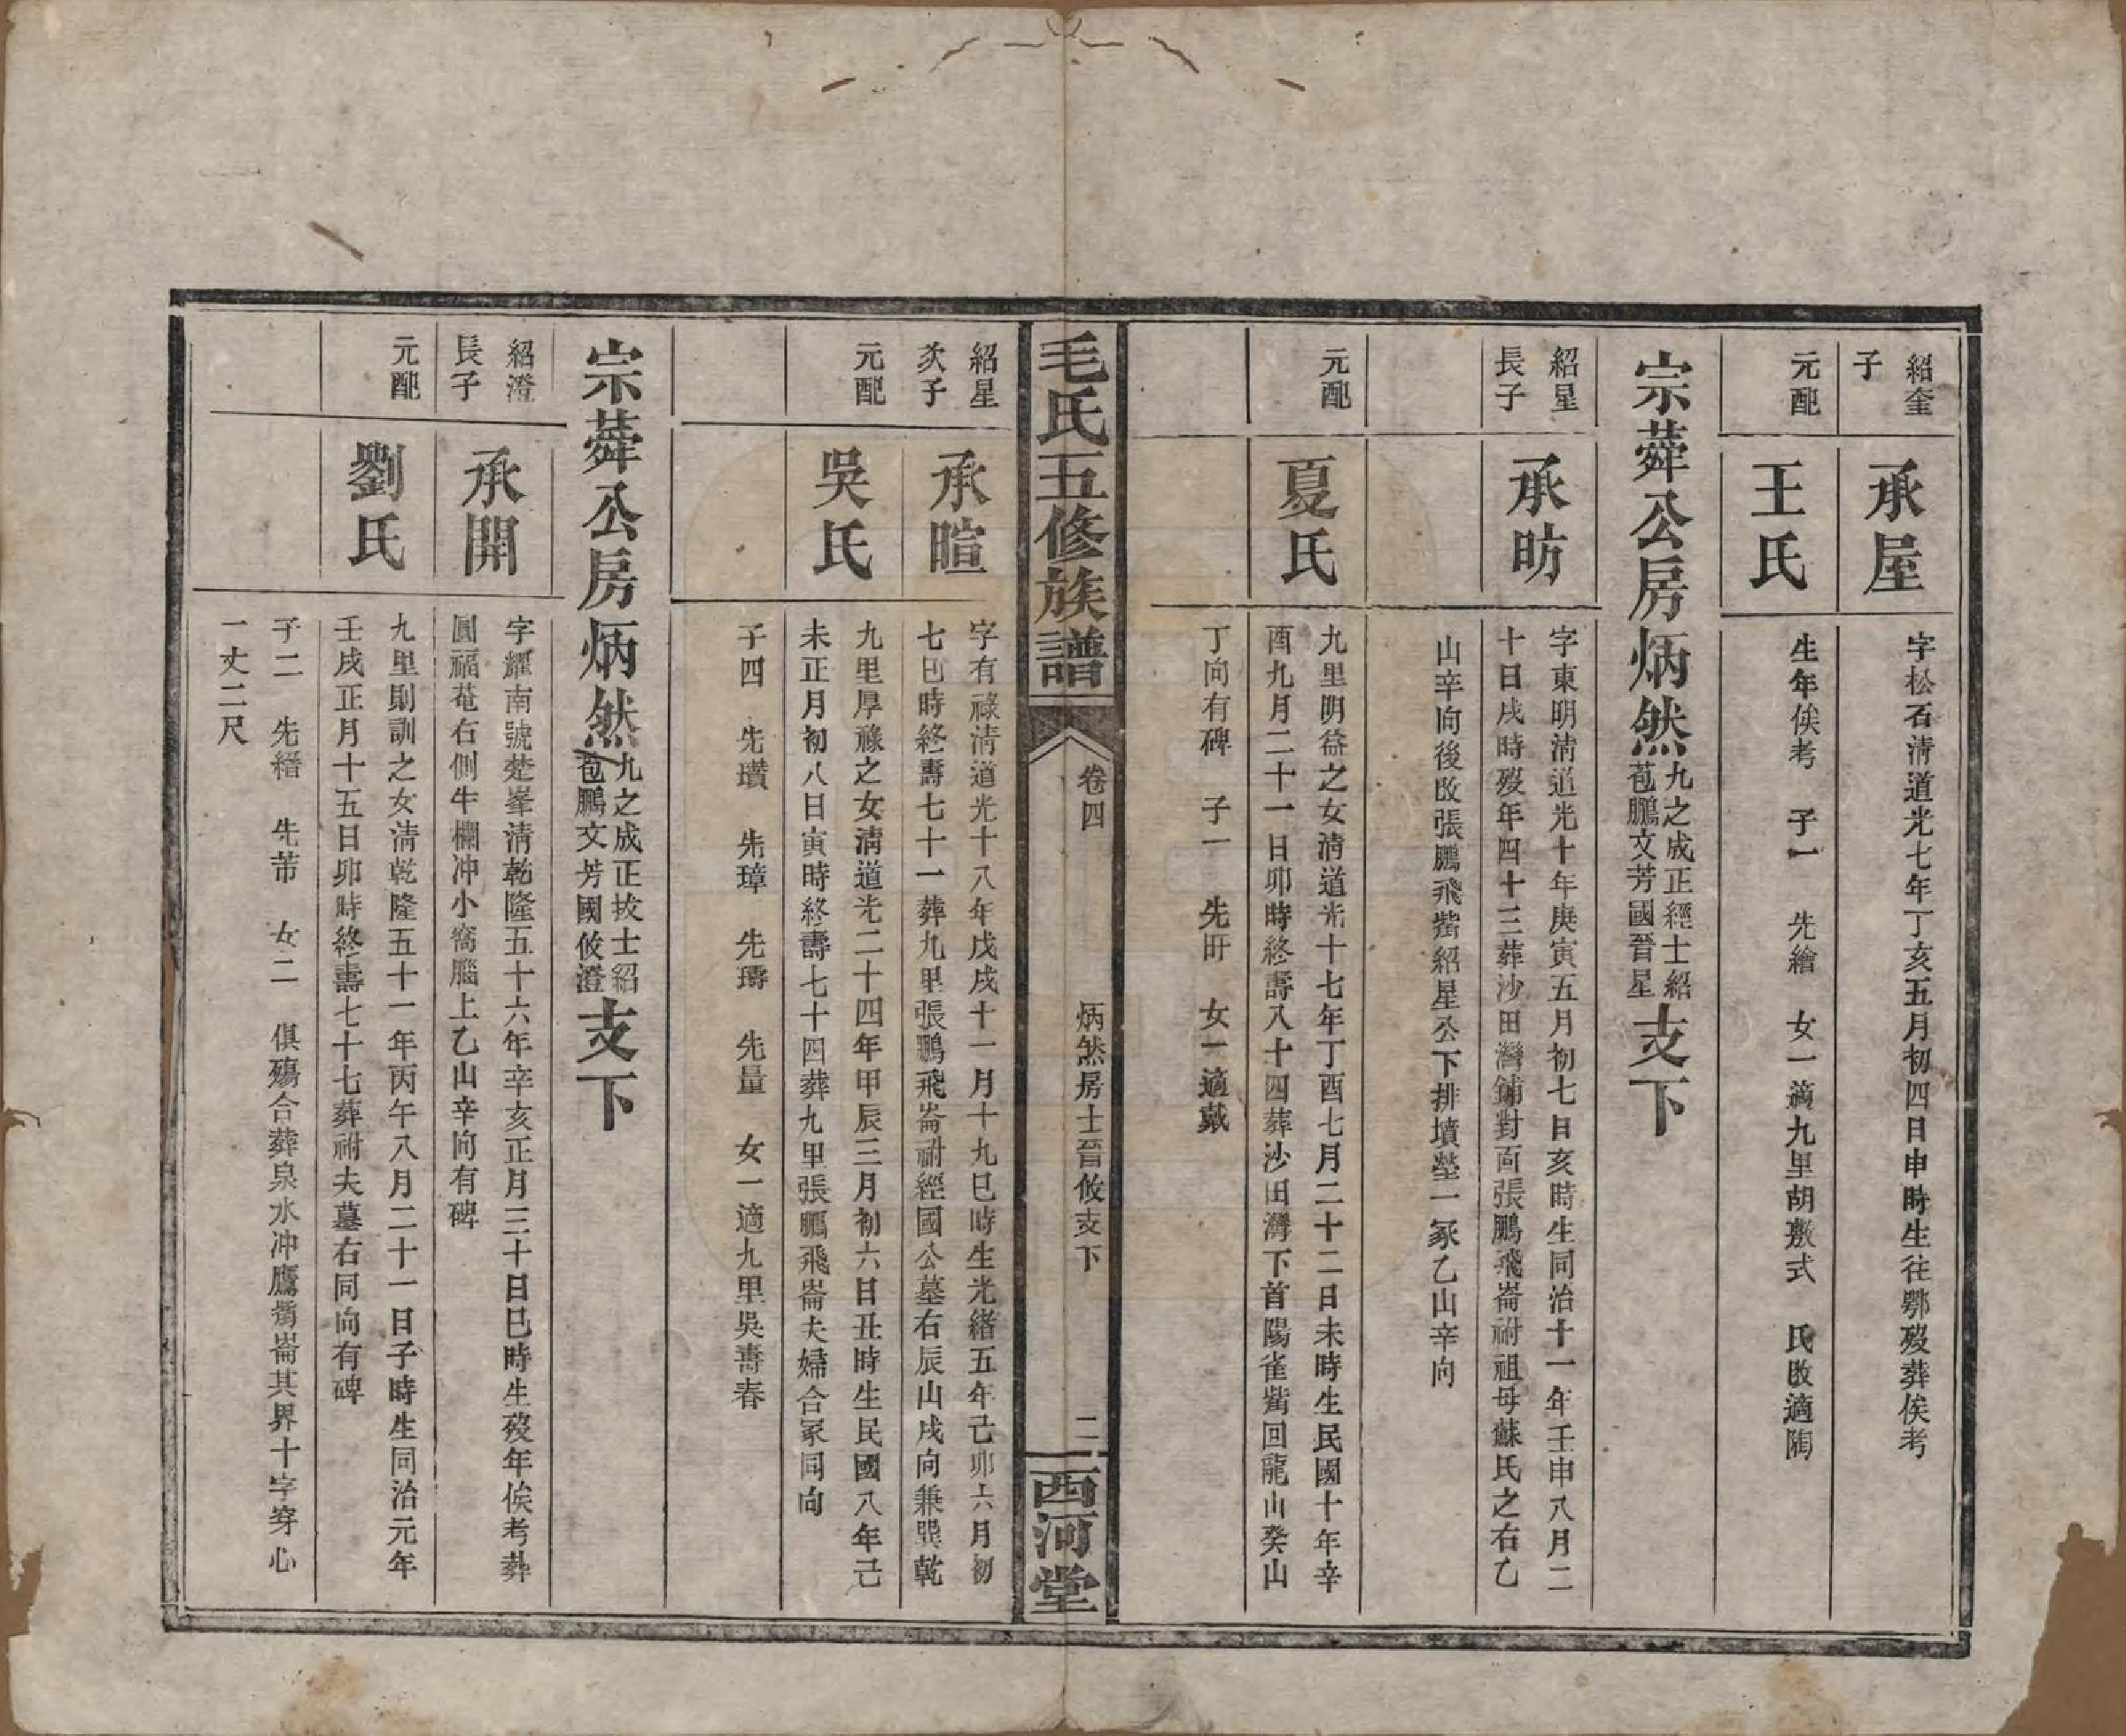 紹奎
子
承屋
字松石清道光七年丁亥五月初四日申時生往鄂歿葬俟考
元配
王氏
生年俟考　子一　先繪　女一適九里胡敷式　氏改適陶
宗蕣公房炳然
九之成正經士紹
苞鵬文芳國晉星
支下
紹星
長子
承昉
字東明淸道光十年庚寅五月初七日亥時生同治十一年壬申八月二
十日戌時歿年四十三葬沙田灣鋪對面張鵬飛崙祔祖母蘇氏之右乙
山辛向後改張鵬飛嘴紹星公下排墳塋一冢乙山辛向
元配
夏氏
九里明益之女淸道光十七年丁酉七月二十二日未時生民國十年辛
酉九月二十一日卯時終壽八十四葬沙田灣下首陽雀嘴回龍山癸山
丁向有碑　子一　先旰　女一適戴
毛氏五修族譜
卷四
炳然房士晉攸支下
二
西河堂
紹星
次子
承暄
字有祿淸道光十八年戊戌十一月十九巳時生光緒五年己卯六月初
七巳時終壽七十一葬九里張鵬飛崙祔經國公墓右辰山戌向兼巽乾
元配
吳氏
九里厚祿之女淸道光二十四年甲辰三月初六日丑時生民國八年己
未正月初八日寅時終壽七十四葬九里張鵬飛崙夫婦合冢同向
子四　先瓚　先璋　先璹　先量　女一適九里吳壽春
宗蕣公房炳然
九之成正拔士紹
苞鵬文芳國攸澄
支下
紹澄
長子
承開
字耀南號楚峯淸乾隆五十六年辛亥正月三十日巳時生歿年俟考葬
圓福菴右側牛欄冲小窩腦上乙山辛向有碑
元配
劉氏
九里則訓之女淸乾隆五十一年丙午八月二十一日子時生同治元年
壬戌正月十五日卯時終壽七十七葬祔夫墓右同向有碑
子二　先縉　先芾　女二　俱殤合葬泉水冲鷹嘴崙其界十字穿心
一丈二尺